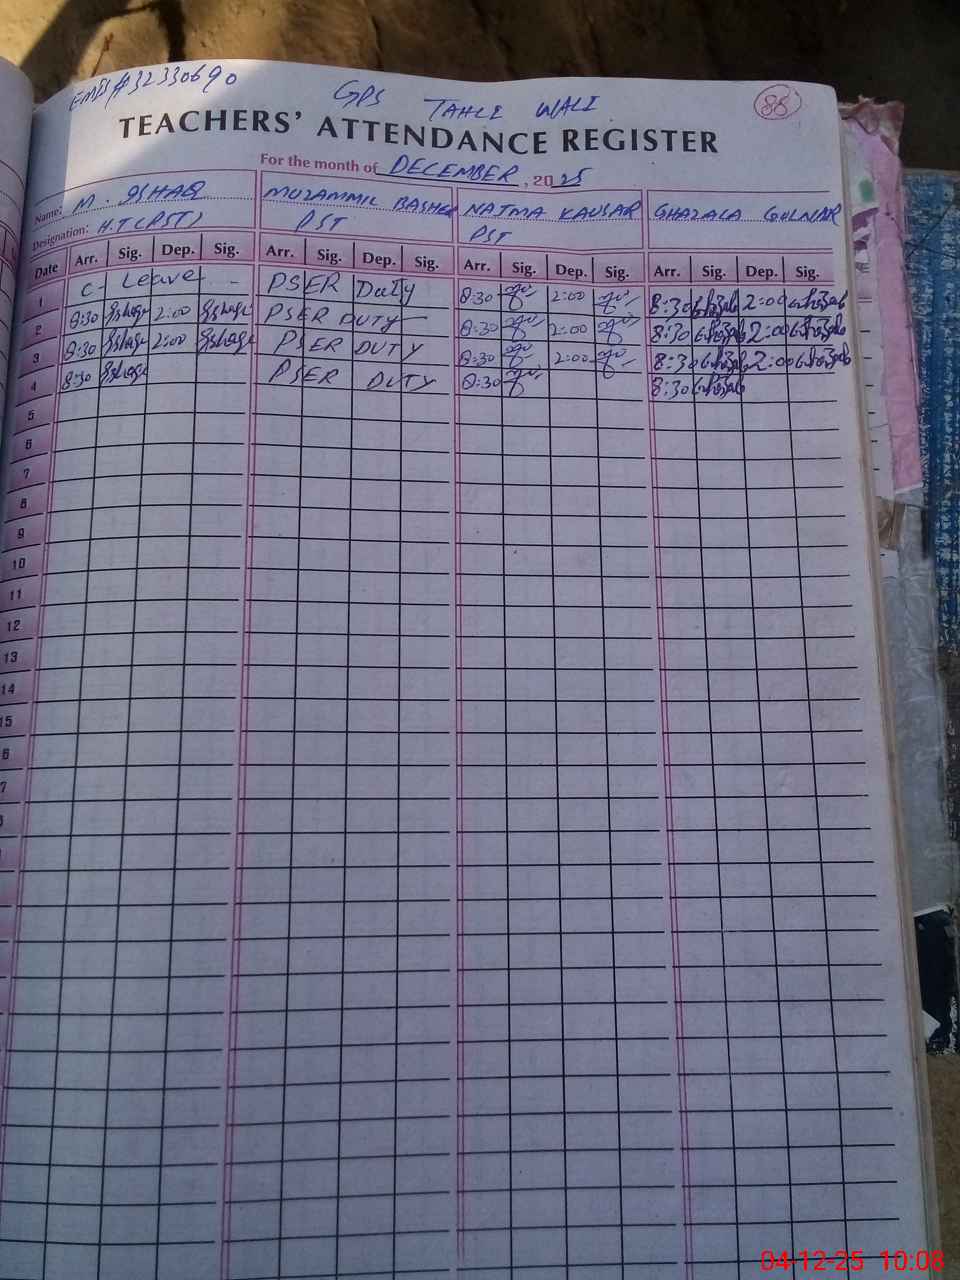 EMIS # 32330690
GPS TAHLI WALI
88
TEACHERS' ATTENDANCE REGISTER
For the month of DECEMBER, 2025
Name: M. ISHAQ MUZAMMIL BASHEER NAJMA KAUSAR GHAZALA GULNAR
Designation: H.T (PST) PST PST
Date Arr. Sig. Dep. Sig. Arr. Sig. Dep. Sig. Arr. Sig. Dep. Sig. Arr. Sig. Dep. Sig.
1 C- Leave PSER Duty 8:30 2:00 8:30 2:00
2 8:30 Ishaq 2:00 Ishaq PSER DUTY 8:30 2:00 8:30 2:00
3 8:30 Ishaq 2:00 Ishaq PSER DUTY 8:30 2:00 8:30 2:00
4 8:30 Ishaq PSER DUTY 8:30 8:30
5
6
7
8
9
10
11
12
13
14
15
6
7
04-12-25 10:08